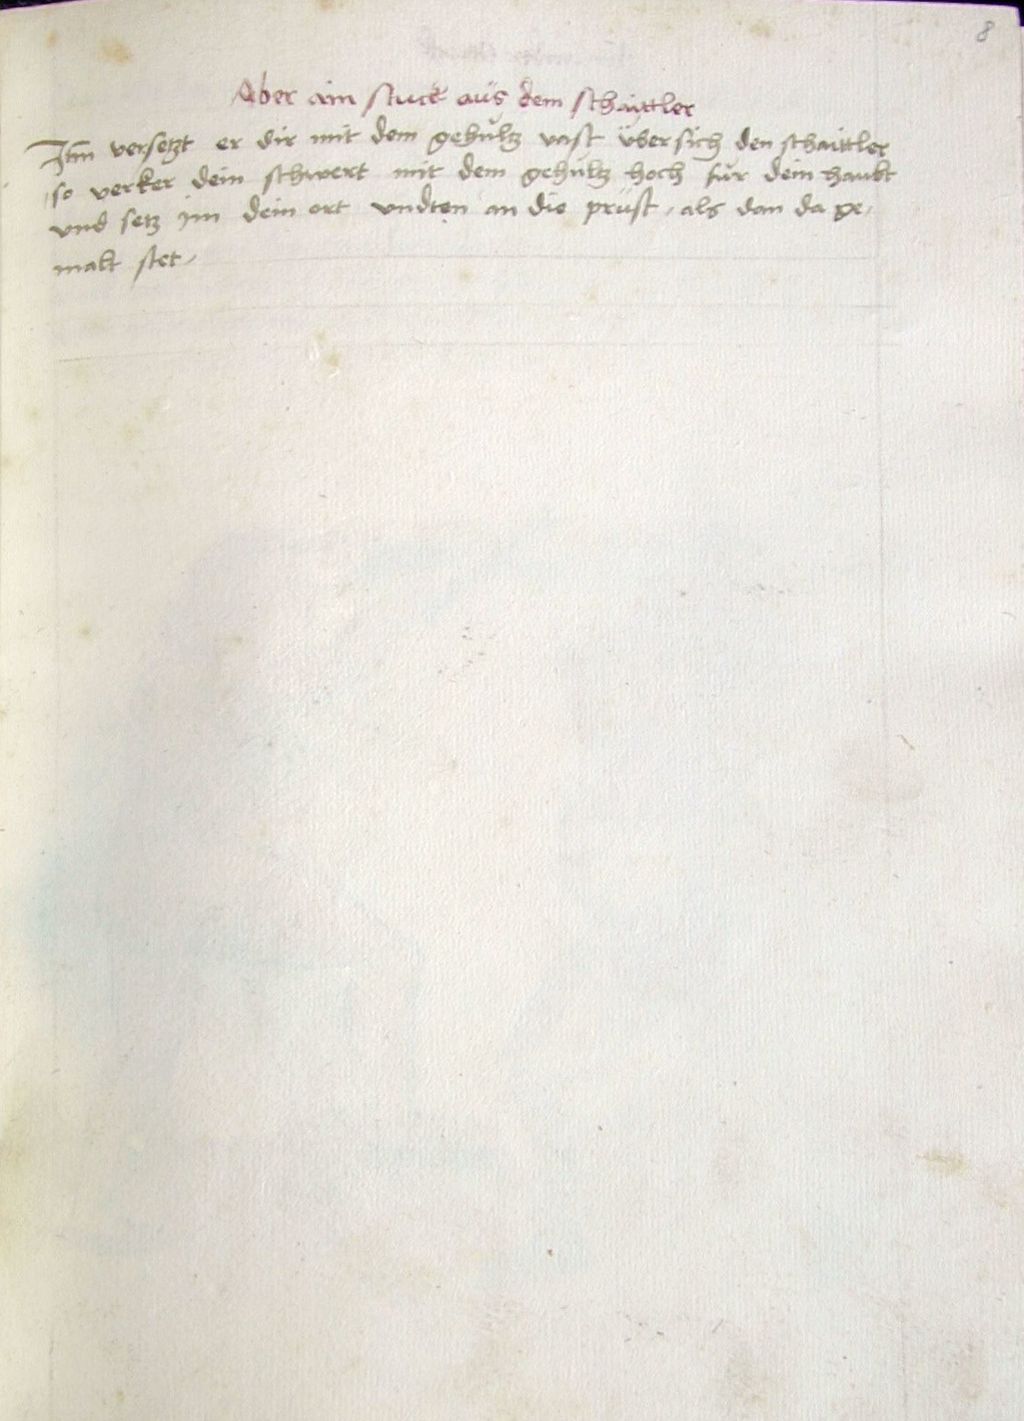 8
Aber ain stuck aüs dem schayttler
Itm̄ versetzt er dir mit dem gehültz vast übersich den schaittler
so verker dein schwert mit dem gehültz hoch für dein haubt
vnd setz im dein ort vndten an die prüst / als dan da ge /
malt stet /